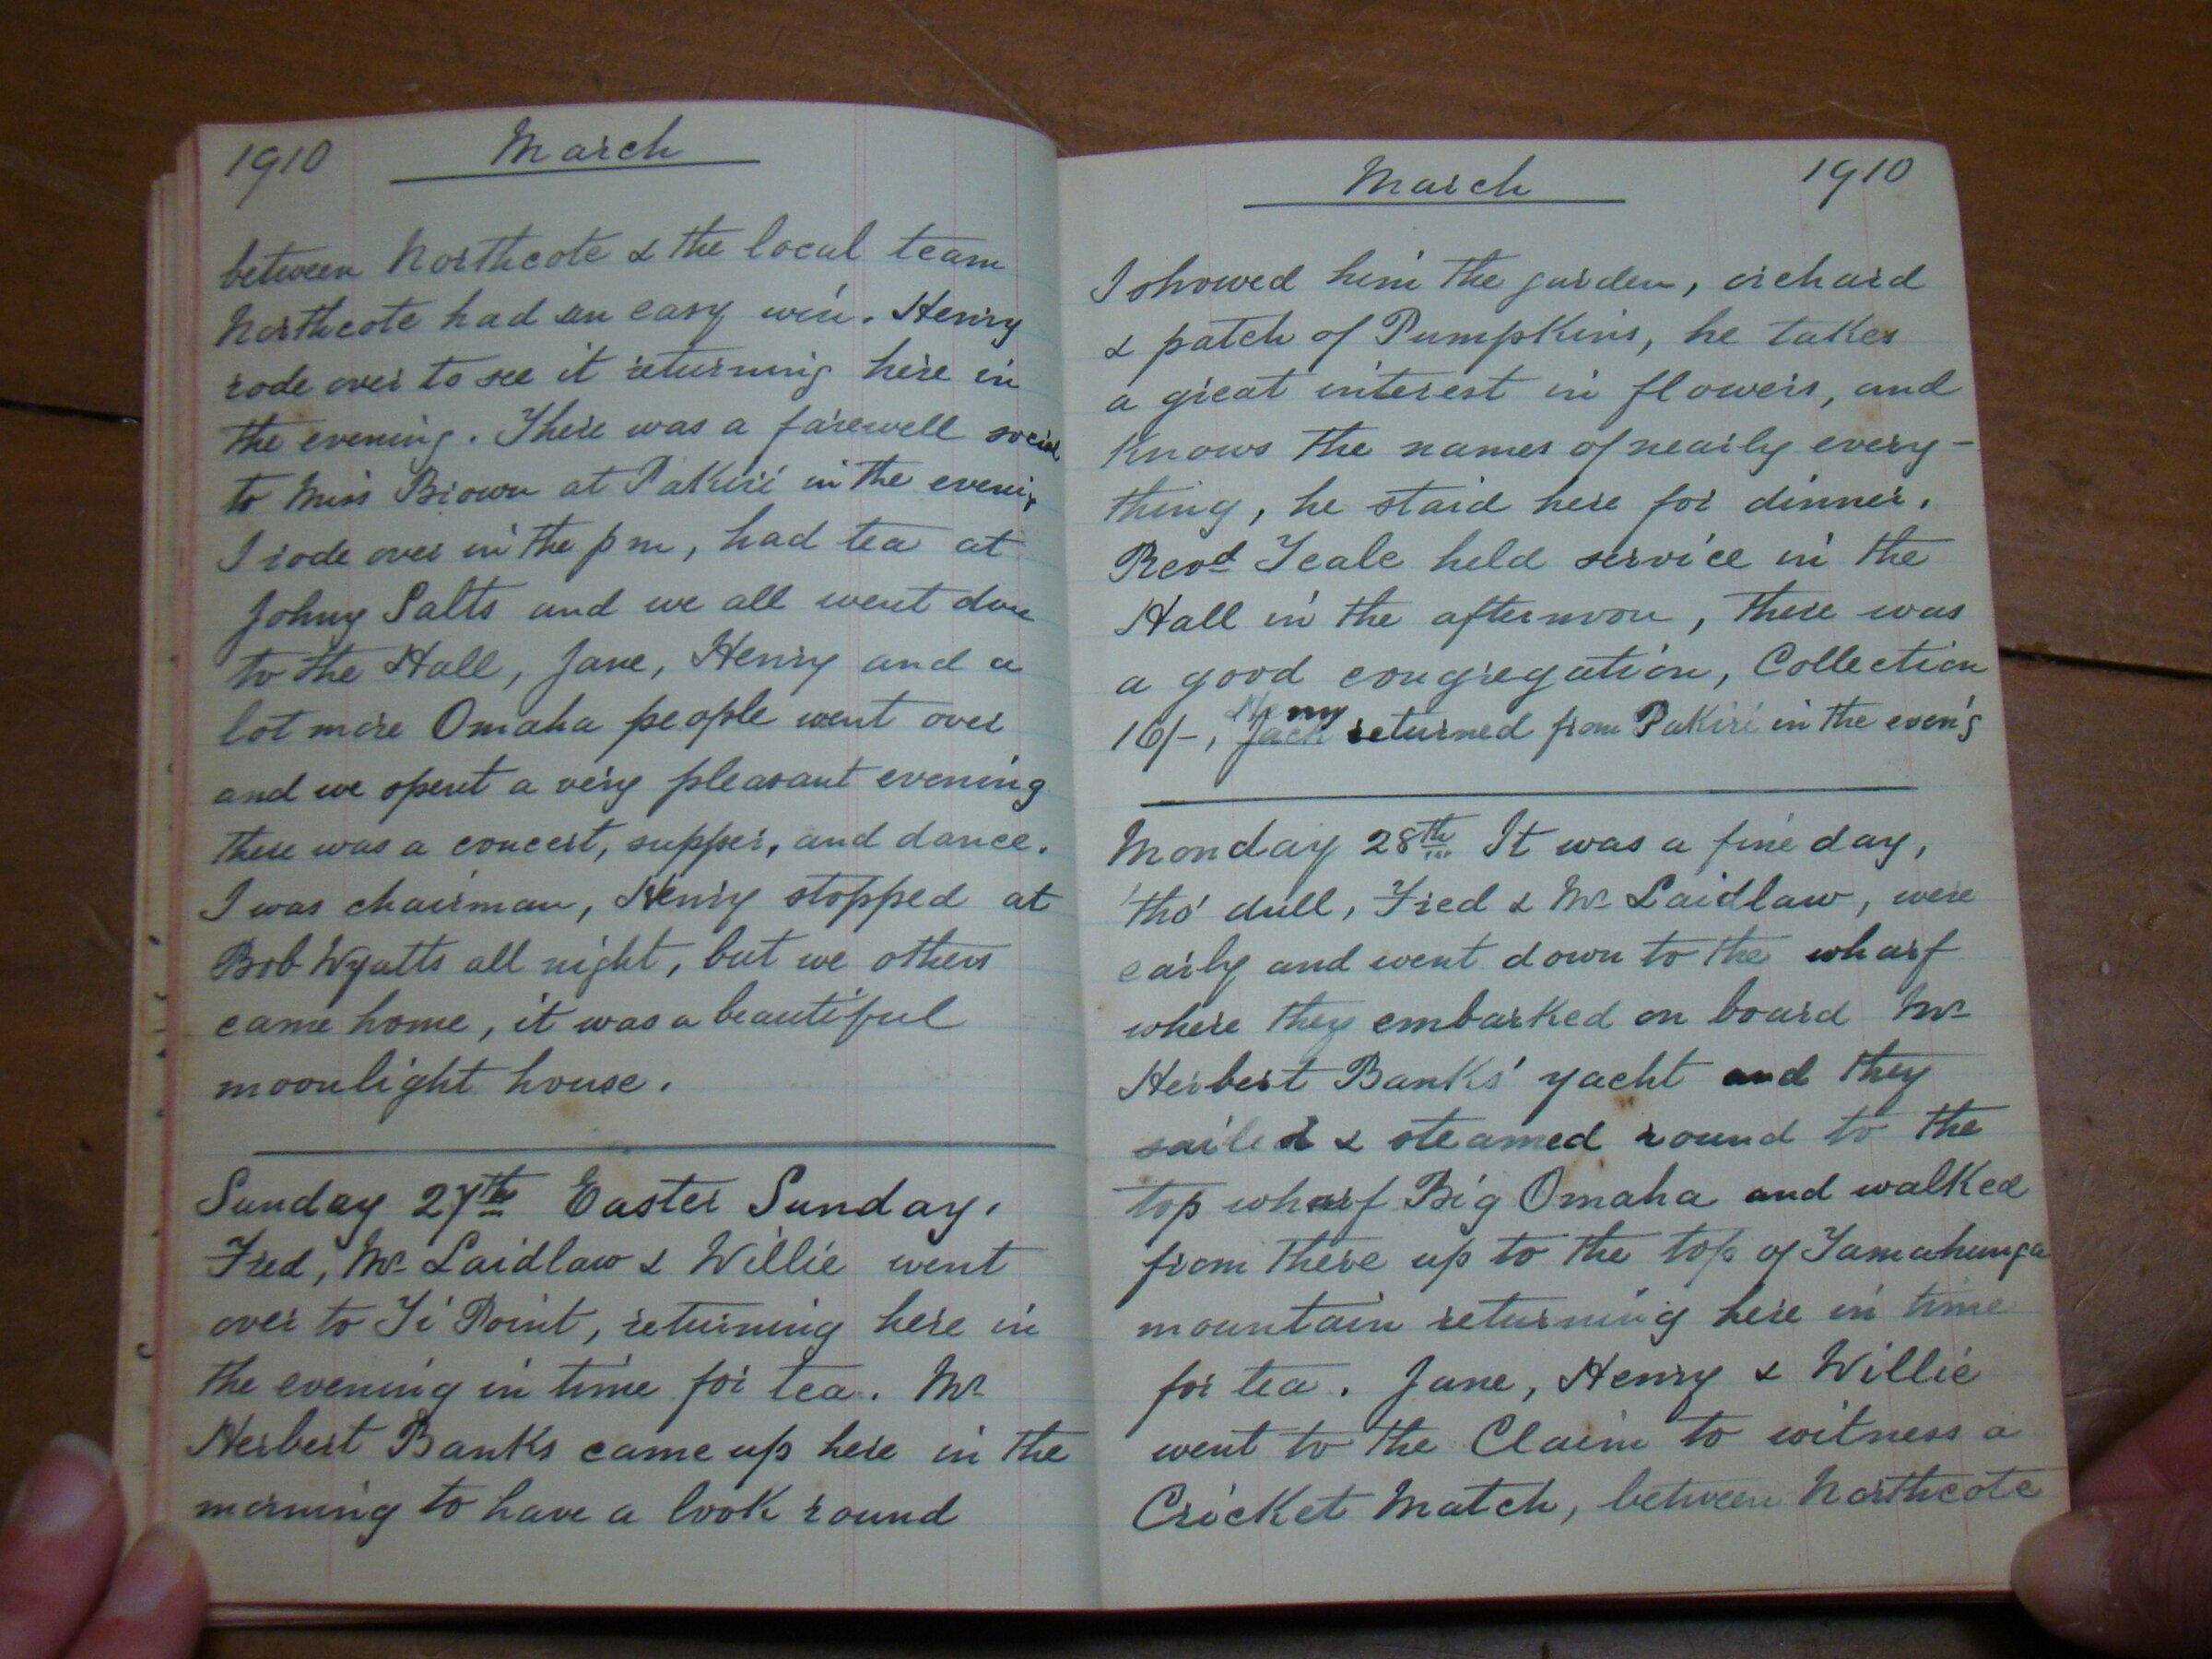 1910 March
between Northcote & the local team
Northcote had an easy win. Henry
rode over to see it returning here in
the evening. There was a farewell social
to Miss Brown at Pakiri in the evening
I rode over in the pm, had tea at
Johny Salts and we all went down
to the Hall, Jane, Henry and a
lot more Omaha people went over
and we spent a very pleasant evening
there was a concert, supper, and dance.
I was chairman, Henry stopped at
Bob Wyatts all night, but we others
came home, it was a beautiful
moonlight house.
Sunday 27th Easter Sunday.
Fred, Mr Laidlaw & Willie went
over to Ti Point, returning here in
the evening in time for tea. Mr
Herbert Banks came up here in the
morning to have a look round
March 1910
I showed him the garden, orchard
& patch of Pumpkins, he takes
a great interest in flowers, and
knows the names of nearly every-
thing, he staid here for dinner.
Revd Teale held service in the
Hall in the afternoon, there was
a good congregation, Collection
Henry
16/-, Jack returned from Pakiri in the even'g
Monday 28th It was a fine day,
'tho' dull, Fred & Mr Laidlaw, were
early and went down to the wharf
where they embarked on board Mr
Herbert Banks' yacht and they
sailed & steamed round to the
top wharf Big Omaha and walked
from there up to the top of Tamahunga
mountain returning here in time
for tea. Jane, Henry & Willie
went to the Claim to witness a
Cricket Match, between Northcote